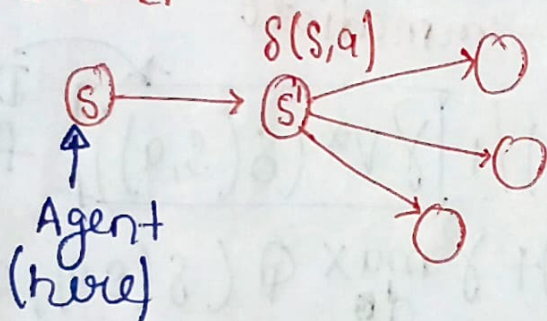 δ(S,a)
S
S'
Agent
(here)